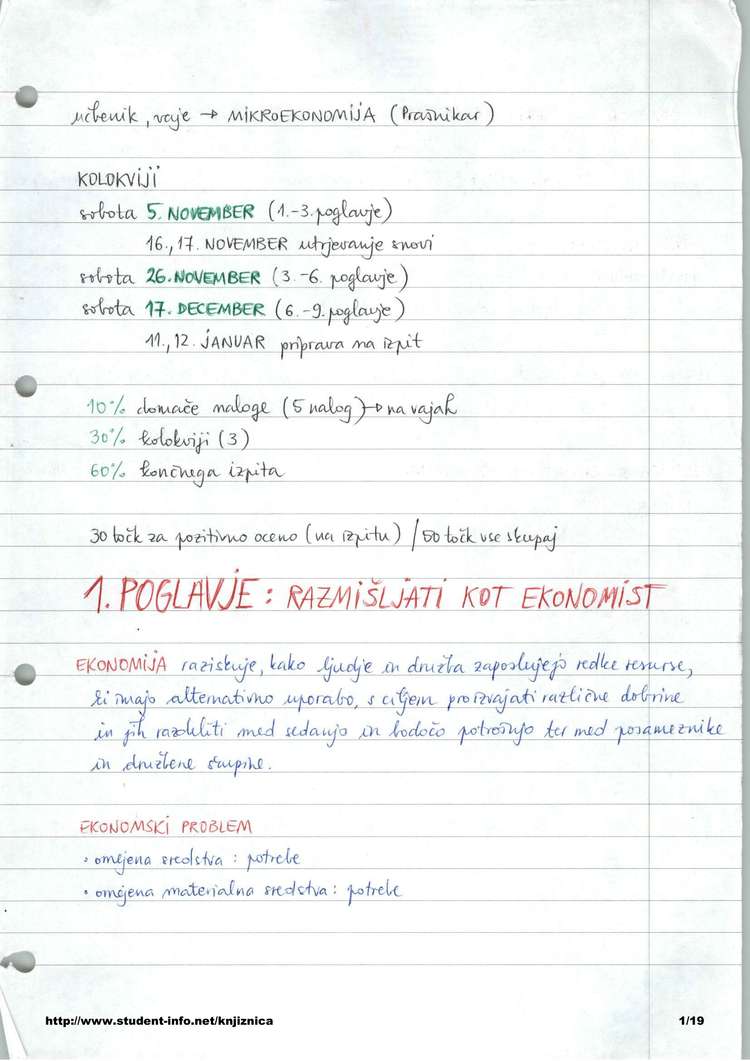 učbenik, vaje → MIKROEKONOMIJA (Prašnikar)
KOLOKVIJI
sobota 5. NOVEMBER (1.-3. poglavje)
16., 17. NOVEMBER utrjevanje snovi
sobota 26. NOVEMBER (3.-6. poglavje)
sobota 17. DECEMBER (6.-9. poglavje)
11., 12. JANUAR priprava na izpit
10% domače naloge (5 nalog) → na vajah
30% kolokviji (3)
60% končnega izpita
30 točk za pozitivno oceno (na izpitu) / 50 točk vse skupaj
1. POGLAVJE: RAZMIŠLJATI KOT EKONOMIST
EKONOMIJA raziskuje, kako ljudje in družba zaposlujejo redke resurse,
ki imajo alternativno uporabo, s ciljem proizvajati različne dobrine
in jih razdeliti med sedanjo in bodočo potrošnjo ter med posameznike
in družbene skupine.
EKONOMSKI PROBLEM
• omejena sredstva : potrebe
• omejena materialna sredstva : potrebe
http://www.student-info.net/knjiznica
1/19